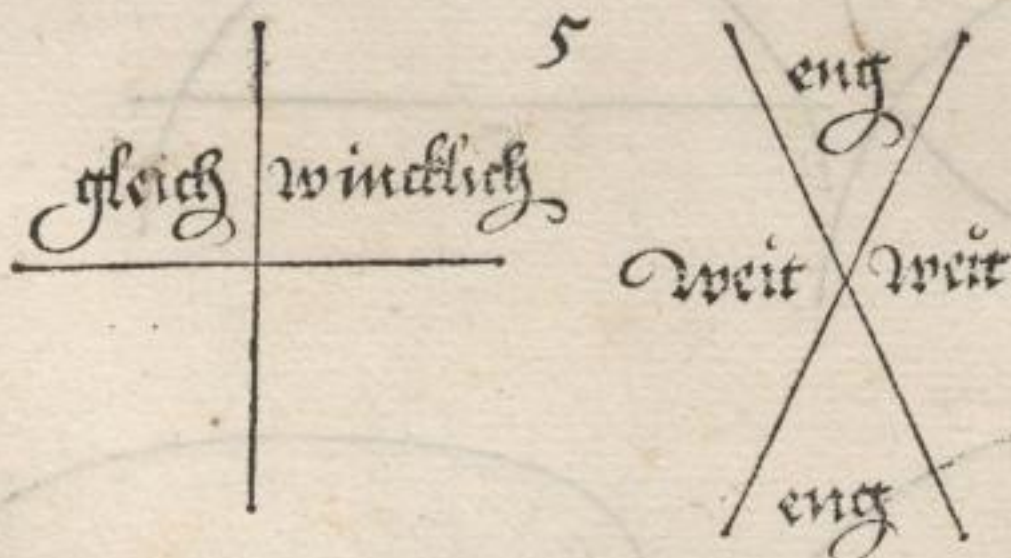 5
gleich wincklich
eng
weit weit
eng